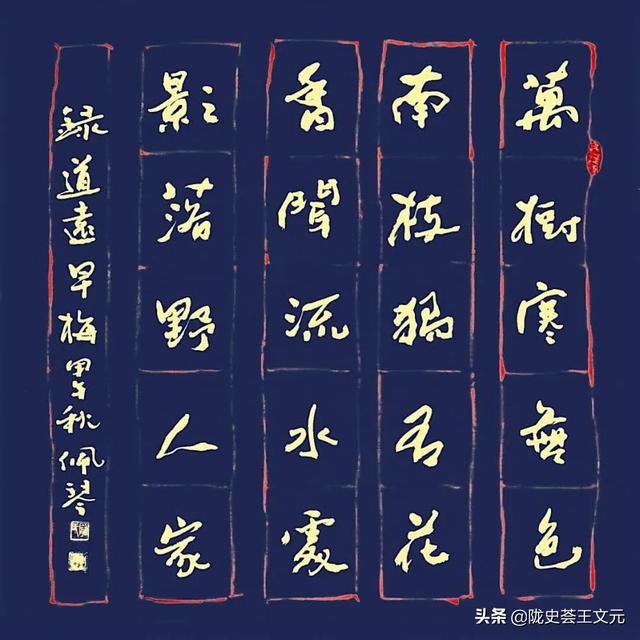 萬樹寒無色
南枝獨有花
香聞流水處
影落野人家
録道遠早梅甲午秋佩琴
头条 @陇史荟王文元